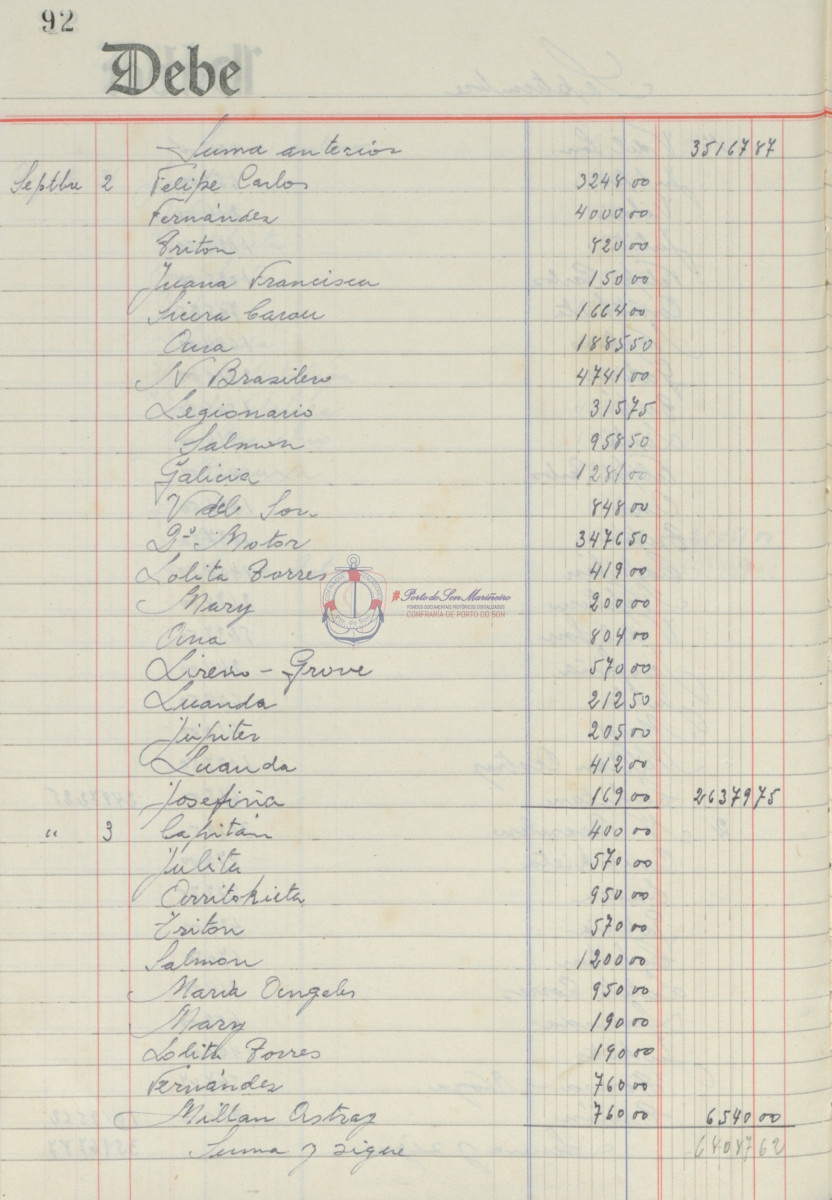 92
Debe
Suma anterior 35167 87
Septbre 2 Felipe Carlos 3248 00
Fernández 4000 00
Triton 820 00
Juana Francisca 150 00
Sieira Carou 1664 00
Ana 1885 50
N Brasilero 4741 00
Legionario 315 75
Salmon 958 50
Galicia 1281 00
V del Son 848 00
Dº Motor 3476 50
Lolita Torres 419 00
Mary 200 00
Ana 804 00
- Grove 570 00
Luanda 212 50
Júpiter 205 00
Luanda 412 00
Josefina 169 00 26379 75
" 3 Capitán 400 00
Julita 570 00
Arritokieta 950 00
Triton 570 00
Salmon 1200 00
María Angeles 950 00
Mary 190 00
Lolita Torres 190 00
Fernández 760 00
Millan Astray 760 00 6540 00
Suma y sigue 68087 62
Porto do Son Mariñeiro
FONDOS DOCUMENTAIS HISTÓRICOS DIXITALIZADOS
CONFRARÍA DE PORTO DO SON